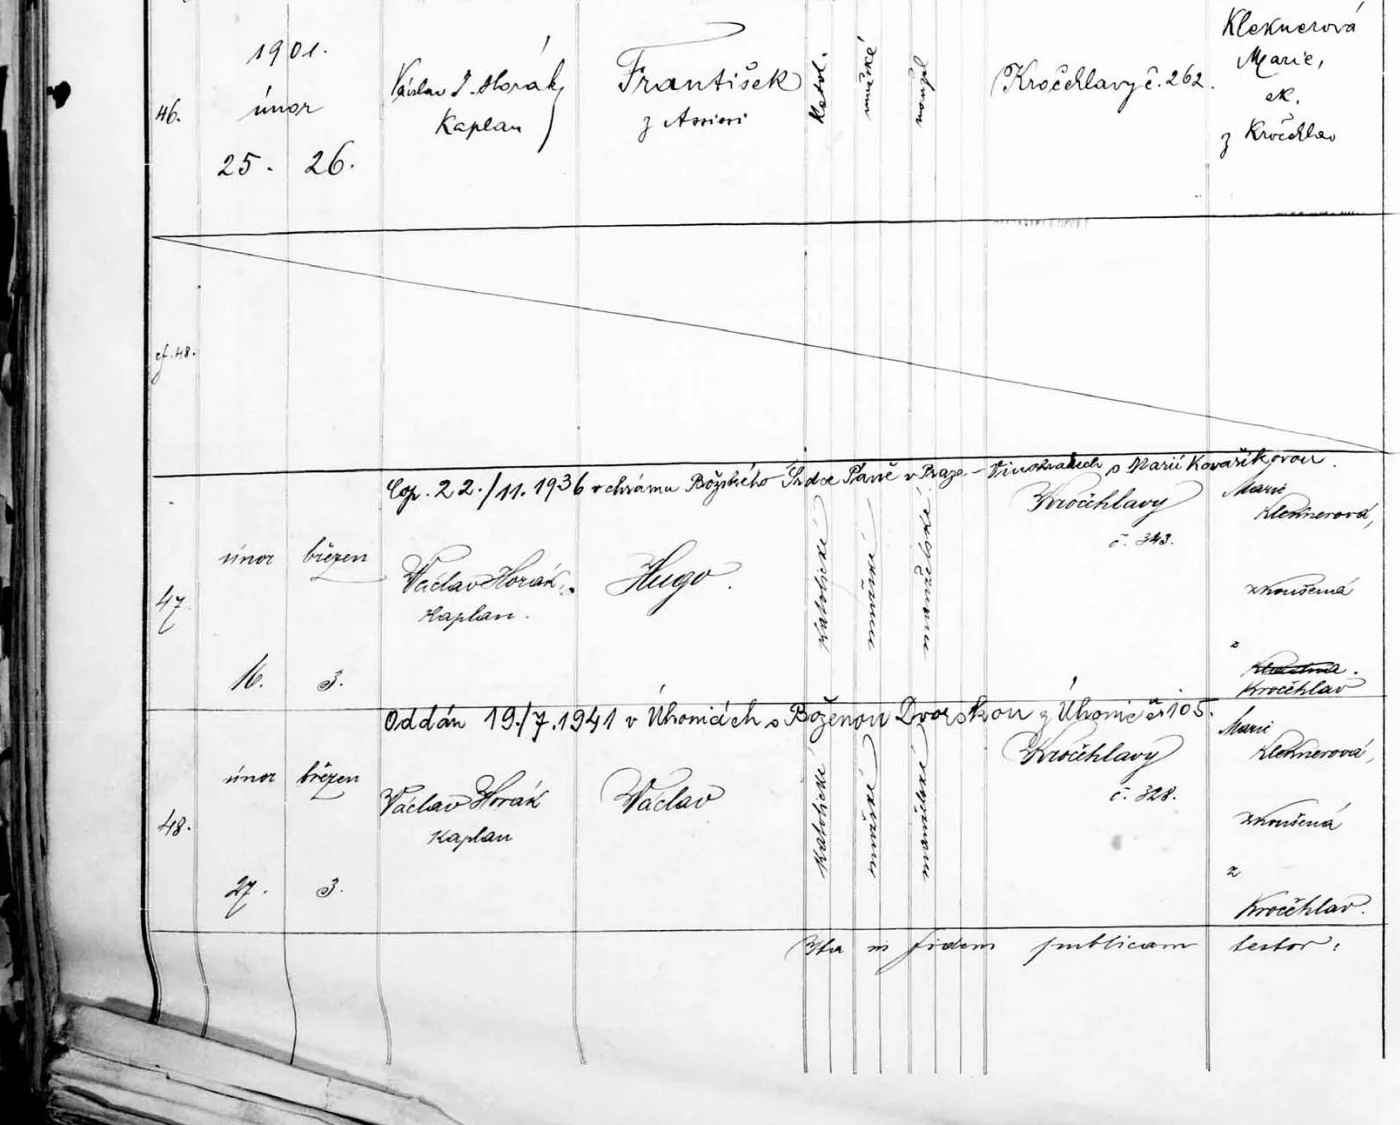 46.
1901.
únor
25. 26.
Václav J. Horák
Kaplan
František
z Assisi
katol.
mužské
manžel
Kročehlavy č. 262.
Kleknerová
Marie,
zk.
z Kročehlav
cf. 48.
Cop. 22./11. 1936 v chrámu Božského Srdce Páně v Praze - Vinohradech s Marií Kovaříkovou.
47.
únor březen
16. 3.
Václav Horák
Kaplan.
Hugo.
katolické
mužské
manželské
Kročehlavy
č. 343.
Marie
Kleknerová,
zkoušená
z
Kročehlav
Oddán 19./7. 1941 v Úhonicích s Boženou Dvorskou z Úhonic č. 105.
48.
únor březen
27. 3.
Václav Horák
Kaplan
Václav
katolické
mužské
manželské
Kročehlavy
č. 328.
Marie
Kleknerová,
zkoušená
z
Kročehlav.
Ita in fidem publicam testor: